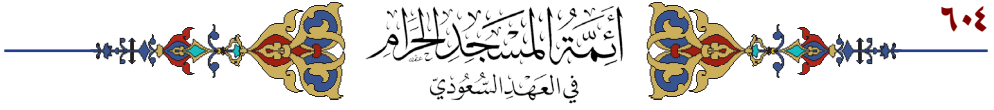 ٦٠٤
أَئِمَّةُ المَسْجِدِ الحَرَامِ
في العَهْدِ السُّعُودِيّ